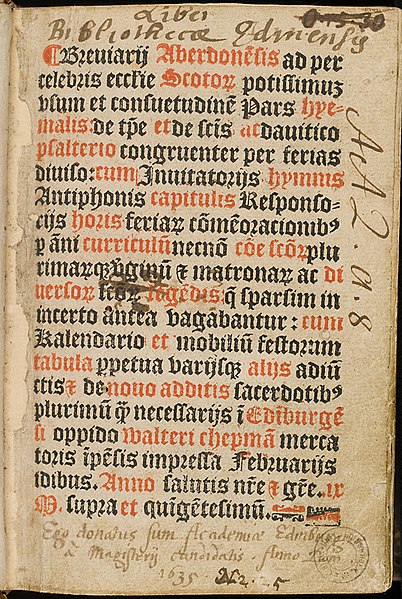 Liber
Bibliothecæ Edinensis
¶Breuiarij Aberdonēsis ad per
celebris eccl̄ie Scotoꝝ potissimuꝫ
vsum et consuetudinē Pars hye⸗
malis: de tp̄e et de sc̄is ac dauitico
psalterio congruenter per ferias
diuiso: cum Inuitatorijs hymnis
Antiphonis capitulis Responso⸗
rijs horis feriaꝝ cōmēoracionibꝰ
ꝑ āni curriculū necnō cōe scōꝝ plu
rimarqꝫ ꝟginū ⁊ matronaꝝ ac di
uersoꝝ scōꝝ legēdis: q̄ sparsim in
incerto antea vagabantur: cum
Kalendario et mobiliū festorum
tabula ꝑpetua varijsqꝫ alijs adiū
ctis ⁊ de nouo additis sacerdotibꝰ
plurimū q̄ꝫ necessarijs ī Edīburgē
si oppido walteri chepmā merca
toris īpēsis impressa Februarijs
idibus. Anno salutis nr̄e ⁊ gr̄e. ix
M. supra et quīgētesimū.
AıA 2. a. 8
Ego donatus sum Academiæ Edinburgenæ
à Magisterij candidatis. Anno Dom
1635